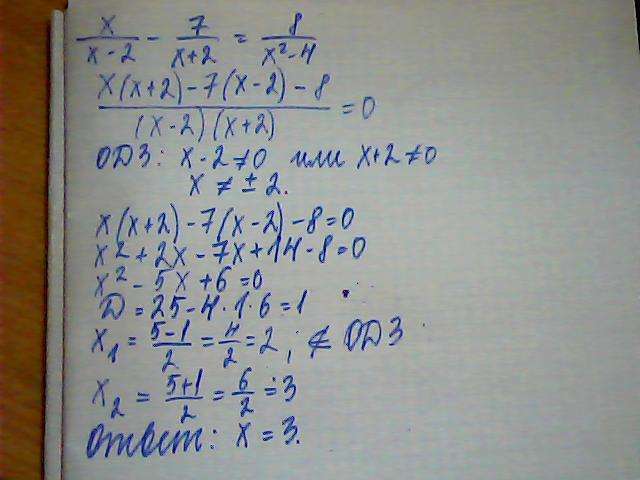 x/(x-2) - 7/(x+2) = 8/(x²-4)
(x(x+2)-7(x-2)-8)/((x-2)(x+2)) = 0
ОДЗ: x-2≠0 или x+2≠0
x ≠ ±2.
x(x+2)-7(x-2)-8=0
x²+2x-7x+14-8=0
x²-5x+6=0
D=25-4·1·6=1
x₁ = (5-1)/2 = 4/2 = 2; ∉ ОДЗ
x₂ = (5+1)/2 = 6/2 = 3
Ответ: x=3.